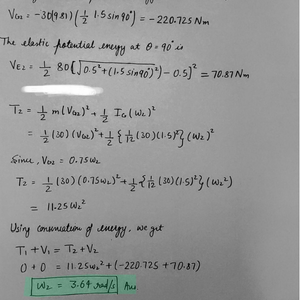 V_G2 = -30(9.81) (1/2 1.5 sin 90°) = -220.725 Nm
The elastic potential energy at θ = 90° is
V_E2 = 1/2 80 [√(0.5² + (1.5 sin 90°)²) - 0.5]² = 70.87 Nm
T2 = 1/2 m (V_G2)² + 1/2 I_G (ω2)²
= 1/2 (30) (V_G2)² + 1/2 {1/12 (30) (1.5)²} (ω2)²
Since, V_G2 = 0.75ω2
T2 = 1/2 (30) (0.75ω2)² + 1/2 {1/12 (30) (1.5)²} (ω2²)
= 11.25ω2²
Using conservation of energy, we get
T1 + V1 = T2 + V2
0 + 0 = 11.25ω2² + (-220.725 + 70.87)
ω2 = 3.64 rad/s Ans